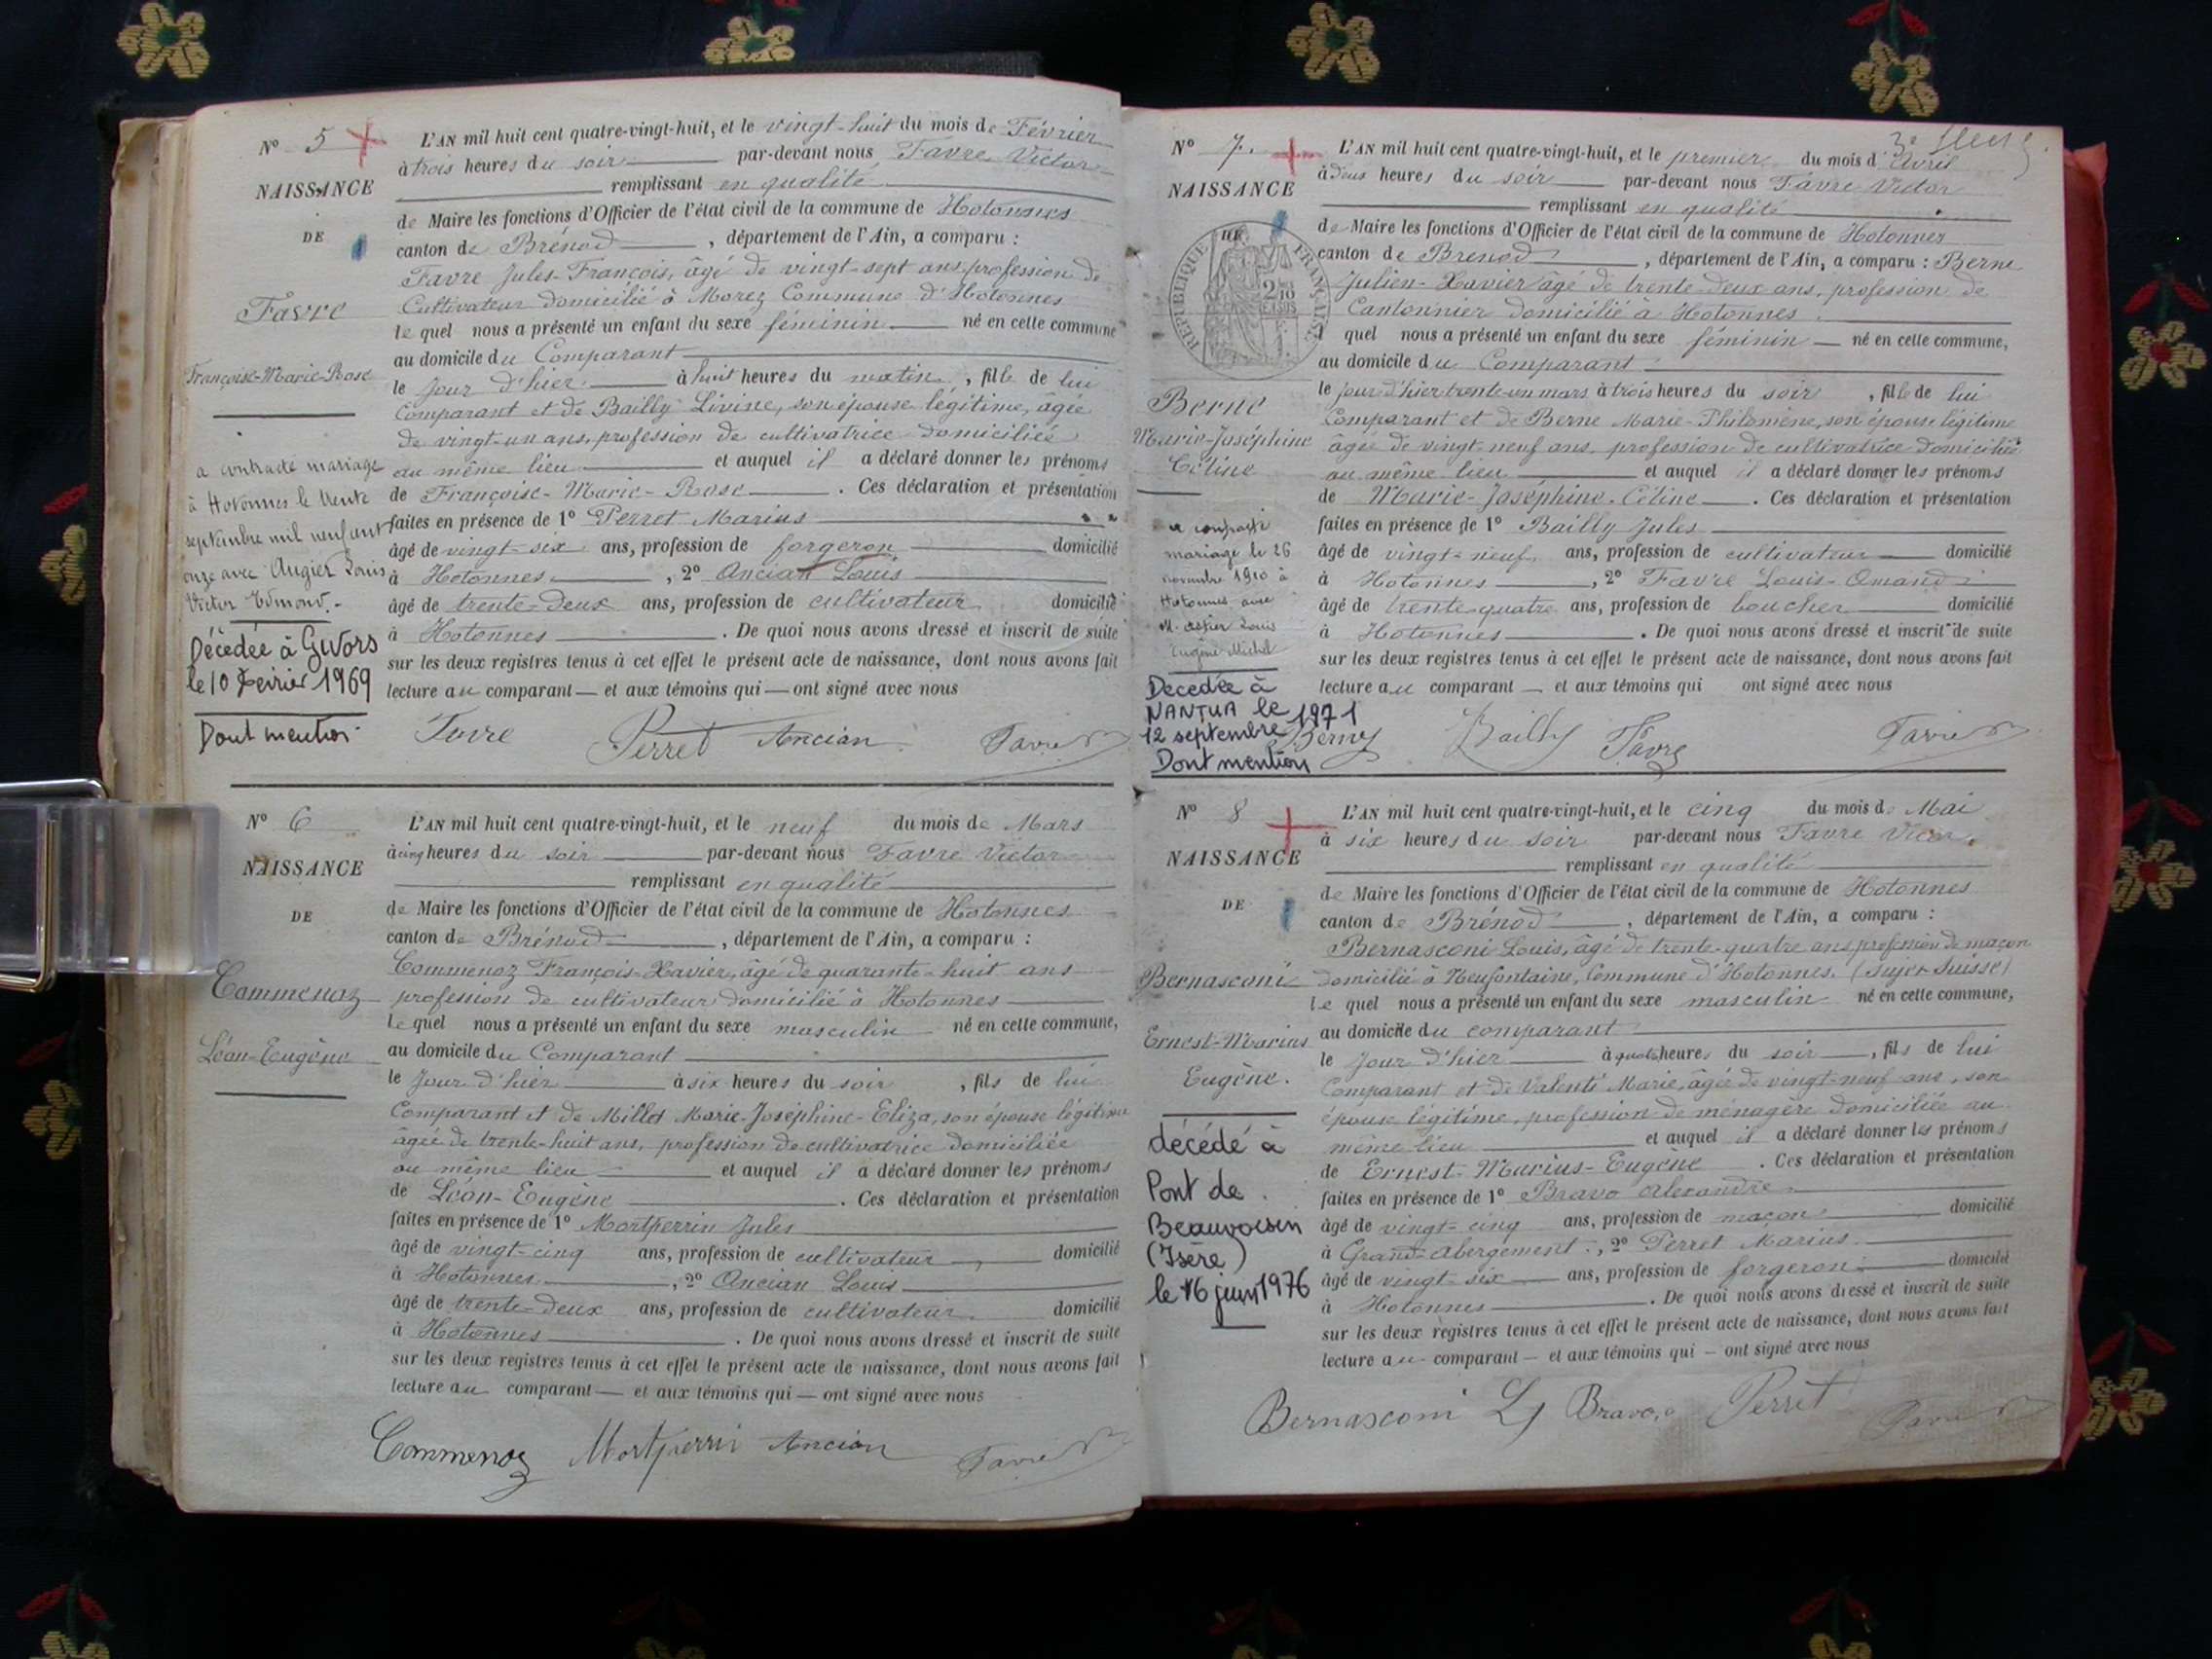 Nº 5
NAISSANCE
DE
Favre
Françoise-Marie-Rose
a contracté mariage
à Hotonnes le trente
septembre mil neuf cent
onze avec Augier Louis
Victor Edmond.-
Décédée à Givors
le 10 Février 1969
Dont mention
L'AN mil huit cent quatre-vingt-huit, et le vingt-huit du mois de Février
à trois heures du soir par-devant nous Favre Victor
remplissant en qualité
de Maire les fonctions d'Officier de l'état civil de la commune de Hotonnes
canton de Brénod, département de l'Ain, a comparu :
Favre Jules-François, âgé de vingt-sept ans profession de
Cultivateur domicilié à Morez Commune d'Hotonnes
lequel nous a présenté un enfant du sexe féminin né en cette commune
au domicile du Comparant
le jour d'hier à huit heures du matin, fille de lui
Comparant et de Bailly Livine, son épouse légitime, âgée
de vingt-un ans, profession de cultivatrice domiciliée
au même lieu et auquel il a déclaré donner les prénoms
de Françoise-Marie-Rose. Ces déclaration et présentation
faites en présence de 1º Perret Marius
âgé de vingt-six ans, profession de forgeron domicilié
à Hotonnes, 2º Ancian Louis
âgé de trente-deux ans, profession de cultivateur domicilié
à Hotonnes. De quoi nous avons dressé et inscrit de suite
sur les deux registres tenus à cet effet le présent acte de naissance, dont nous avons fait
lecture au comparant — et aux témoins qui — ont signé avec nous
Favre Perret Ancian Favre V
Nº 6
NAISSANCE
DE
Commenoz
Léon-Eugène
L'AN mil huit cent quatre-vingt-huit, et le neuf du mois de Mars
à cinq heures du soir par-devant nous Favre Victor
remplissant en qualité
de Maire les fonctions d'Officier de l'état civil de la commune de Hotonnes
canton de Brénod, département de l'Ain, a comparu :
Commenoz François-Xavier, âgé de quarante-huit ans
profession de cultivateur domicilié à Hotonnes
lequel nous a présenté un enfant du sexe masculin né en cette commune,
au domicile du Comparant
le jour d'hier à six heures du soir, fils de lui
Comparant et de Millet Marie-Joséphine-Eliza, son épouse légitime
âgée de trente-huit ans, profession de cultivatrice domiciliée
au même lieu et auquel il a déclaré donner les prénoms
de Léon-Eugène. Ces déclaration et présentation
faites en présence de 1º Montperrin Jules
âgé de vingt-cinq ans, profession de cultivateur domicilié
à Hotonnes, 2º Ancian Louis
âgé de trente-deux ans, profession de cultivateur domicilié
à Hotonnes. De quoi nous avons dressé et inscrit de suite
sur les deux registres tenus à cet effet le présent acte de naissance, dont nous avons fait
lecture au comparant — et aux témoins qui — ont signé avec nous
Commenoz Montperrin Ancian Favre V
Nº 7.
NAISSANCE
DE
RÉPUBLIQUE FRANÇAISE
Berne
Marie-Joséphine
Céline
a contracté
mariage le 26
novembre 1910 à
Hotonnes avec
Louis
Eugène Michel
Décédée à
NANTUA le
12 septembre 1971
Dont mention
L'AN mil huit cent quatre-vingt-huit, et le premier du mois d'Avril
à deux heures du soir par-devant nous Favre Victor
remplissant en qualité
de Maire les fonctions d'Officier de l'état civil de la commune de Hotonnes
canton de Brenod, département de l'Ain, a comparu : Berne
Julien-Xavier âgé de trente-deux ans, profession de
Cantonnier domicilié à Hotonnes.
quel nous a présenté un enfant du sexe féminin — né en cette commune,
au domicile du Comparant
le jour d'hier trente-un mars à trois heures du soir, fille de lui
Comparant et de Berne Marie-Philomène, son épouse légitime
âgée de vingt-neuf ans, profession de cultivatrice domiciliée
au même lieu et auquel il a déclaré donner les prénoms
de Marie-Joséphine-Céline. Ces déclaration et présentation
faites en présence de 1º Bailly Jules
âgé de vingt-neuf ans, profession de cultivateur domicilié
à Hotonnes, 2º Favre Louis-Omand
âgé de trente-quatre ans, profession de boucher domicilié
à Hotonnes. De quoi nous avons dressé et inscrit de suite
sur les deux registres tenus à cet effet le présent acte de naissance, dont nous avons fait
lecture au comparant — et aux témoins qui ont signé avec nous
Berne Bailly Favre Favre V
Nº 8
NAISSANCE
DE
Bernasconi
Ernest-Marius
Eugène.
décédé à
Pont de
Beauvoisin
(Isère)
le 16 juin 1976
L'AN mil huit cent quatre-vingt-huit, et le cinq du mois de Mai
à six heures du soir par-devant nous Favre Victor
remplissant en qualité
de Maire les fonctions d'Officier de l'état civil de la commune de Hotonnes
canton de Brénod, département de l'Ain, a comparu :
Bernasconi Louis, âgé de trente-quatre ans profession de maçon
domicilié à Neufontaine, Commune d'Hotonnes. (Sujet Suisse)
lequel nous a présenté un enfant du sexe masculin né en cette commune,
au domicile du comparant
le jour d'hier à quatre heures du soir, fils de lui
Comparant et de Valenti Marie, âgée de vingt-neuf ans, son
épouse légitime, profession de ménagère domiciliée au
même lieu et auquel il a déclaré donner les prénoms
de Ernest-Marius-Eugène. Ces déclaration et présentation
faites en présence de 1º Bravo Alexandre
âgé de vingt-cinq ans, profession de maçon domicilié
à Grand-Abergement., 2º Perret Marius
âgé de vingt-six ans, profession de forgeron domicilié
à Hotonnes. De quoi nous avons dressé et inscrit de suite
sur les deux registres tenus à cet effet le présent acte de naissance, dont nous avons fait
lecture au comparant — et aux témoins qui — ont signé avec nous
Bernasconi L Bravo Perret Favre V